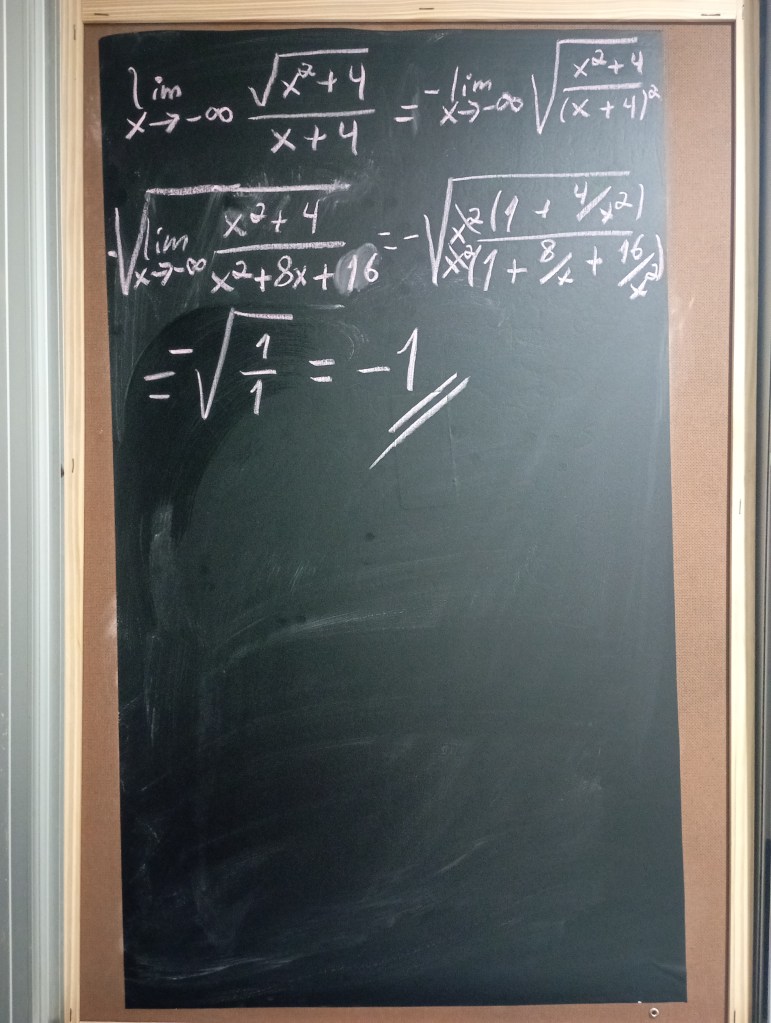 lim x→-∞ √(x²+4)/(x+4) = -lim x→-∞ √((x²+4)/(x+4)²)
-√(lim x→-∞ (x²+4)/(x²+8x+16)) = -√(x²(1+4/x²)/x²(1+8/x+16/x²))
= -√(1/1) = -1